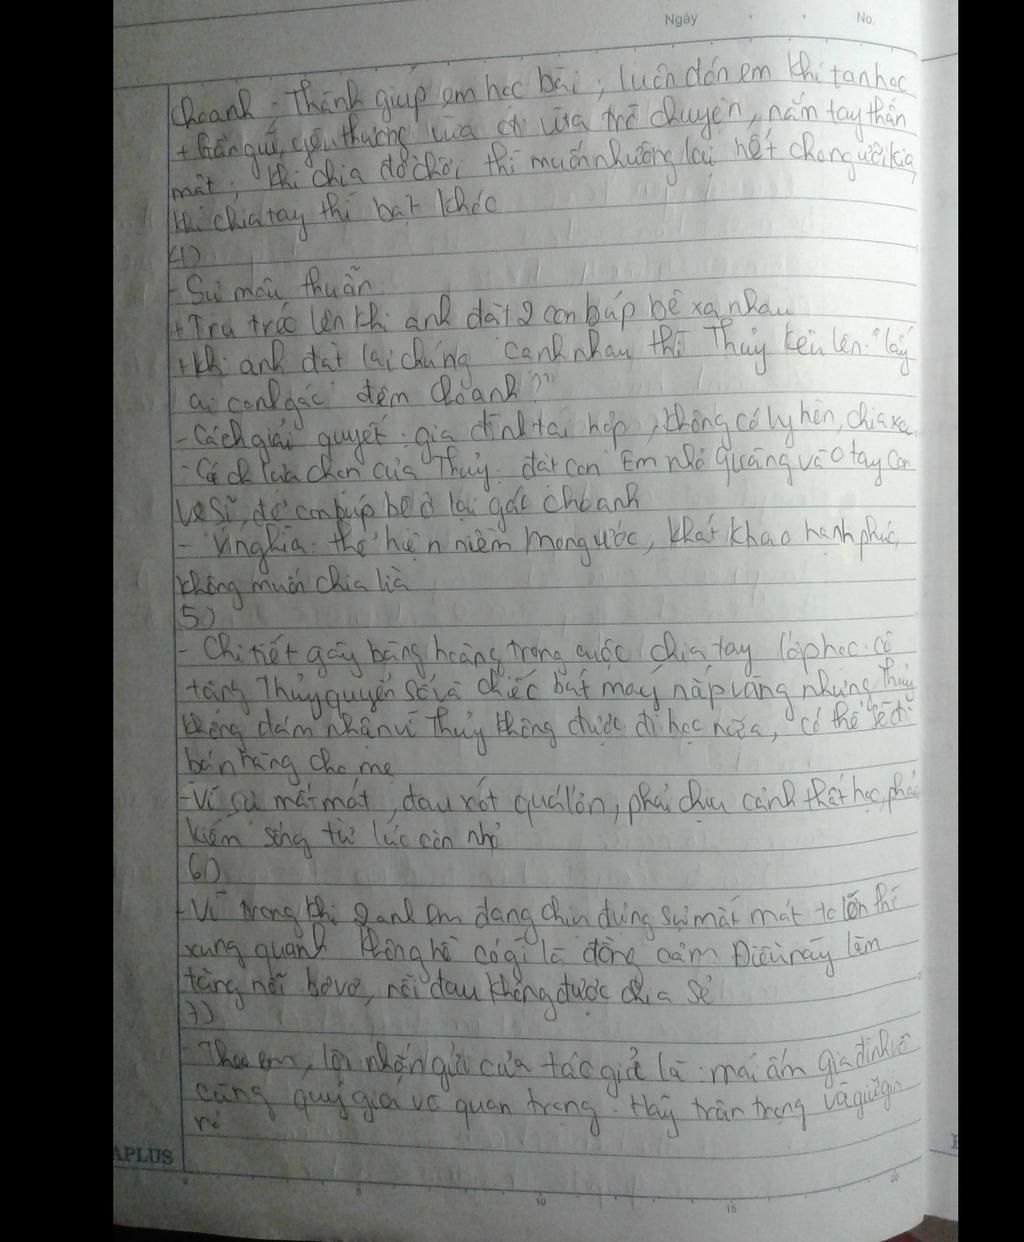 Ngày . . No.
choanh - Thành giúp em học bài, luôn đón em khi tan học
+ Gần gũi, yêu thương vừa đi vừa trò chuyện, nắm tay thân
mật, khi chia đồ chơi thì muốn nhường lại hết cho người kia,
khi chia tay thì bật khóc
4)
- Sự mâu thuẫn
+ Tru tréo lên khi anh đặt 2 con búp bê xa nhau
+ Khi anh đặt lại chúng cạnh nhau thì Thủy kêu lên: "lấy
ai canh gác đêm cho anh?"
- Cách giải quyết: gia đình tái hợp, không có ly hôn, chia xa
- Cách lựa chọn của Thủy: đặt con Em nhỏ quàng vào tay con
Vệ Sĩ, để con búp bê ở lại gác cho anh
- Ý nghĩa: thể hiện niềm mong ước, khát khao hạnh phúc,
không muốn chia lìa
5)
- Chi tiết gây bàng hoàng trong cuộc chia tay lớp học: cô
tặng Thủy quyển sổ và chiếc bút máy nắp vàng nhưng Thủy
không dám nhận vì Thủy không được đi học nữa, có thể sẽ đi
bán hàng cho mẹ
- Vì sự mất mát, đau xót quá lớn, phải chịu cảnh thất học, phải
kiếm sống từ lúc còn nhỏ
6)
- Vì trong khi 2 anh em đang chịu đựng sự mất mát to lớn thì
xung quanh không hề có gì là đồng cảm Điều này làm
tăng nỗi bơ vơ, nỗi đau không được chia sẻ
7)
- Theo em, lời nhắn gửi của tác giả là: mái ấm gia đình vô
cùng quý giá và quan trọng. Hãy trân trọng và giữ gìn
nó
APLUS
0 5 10 15 20